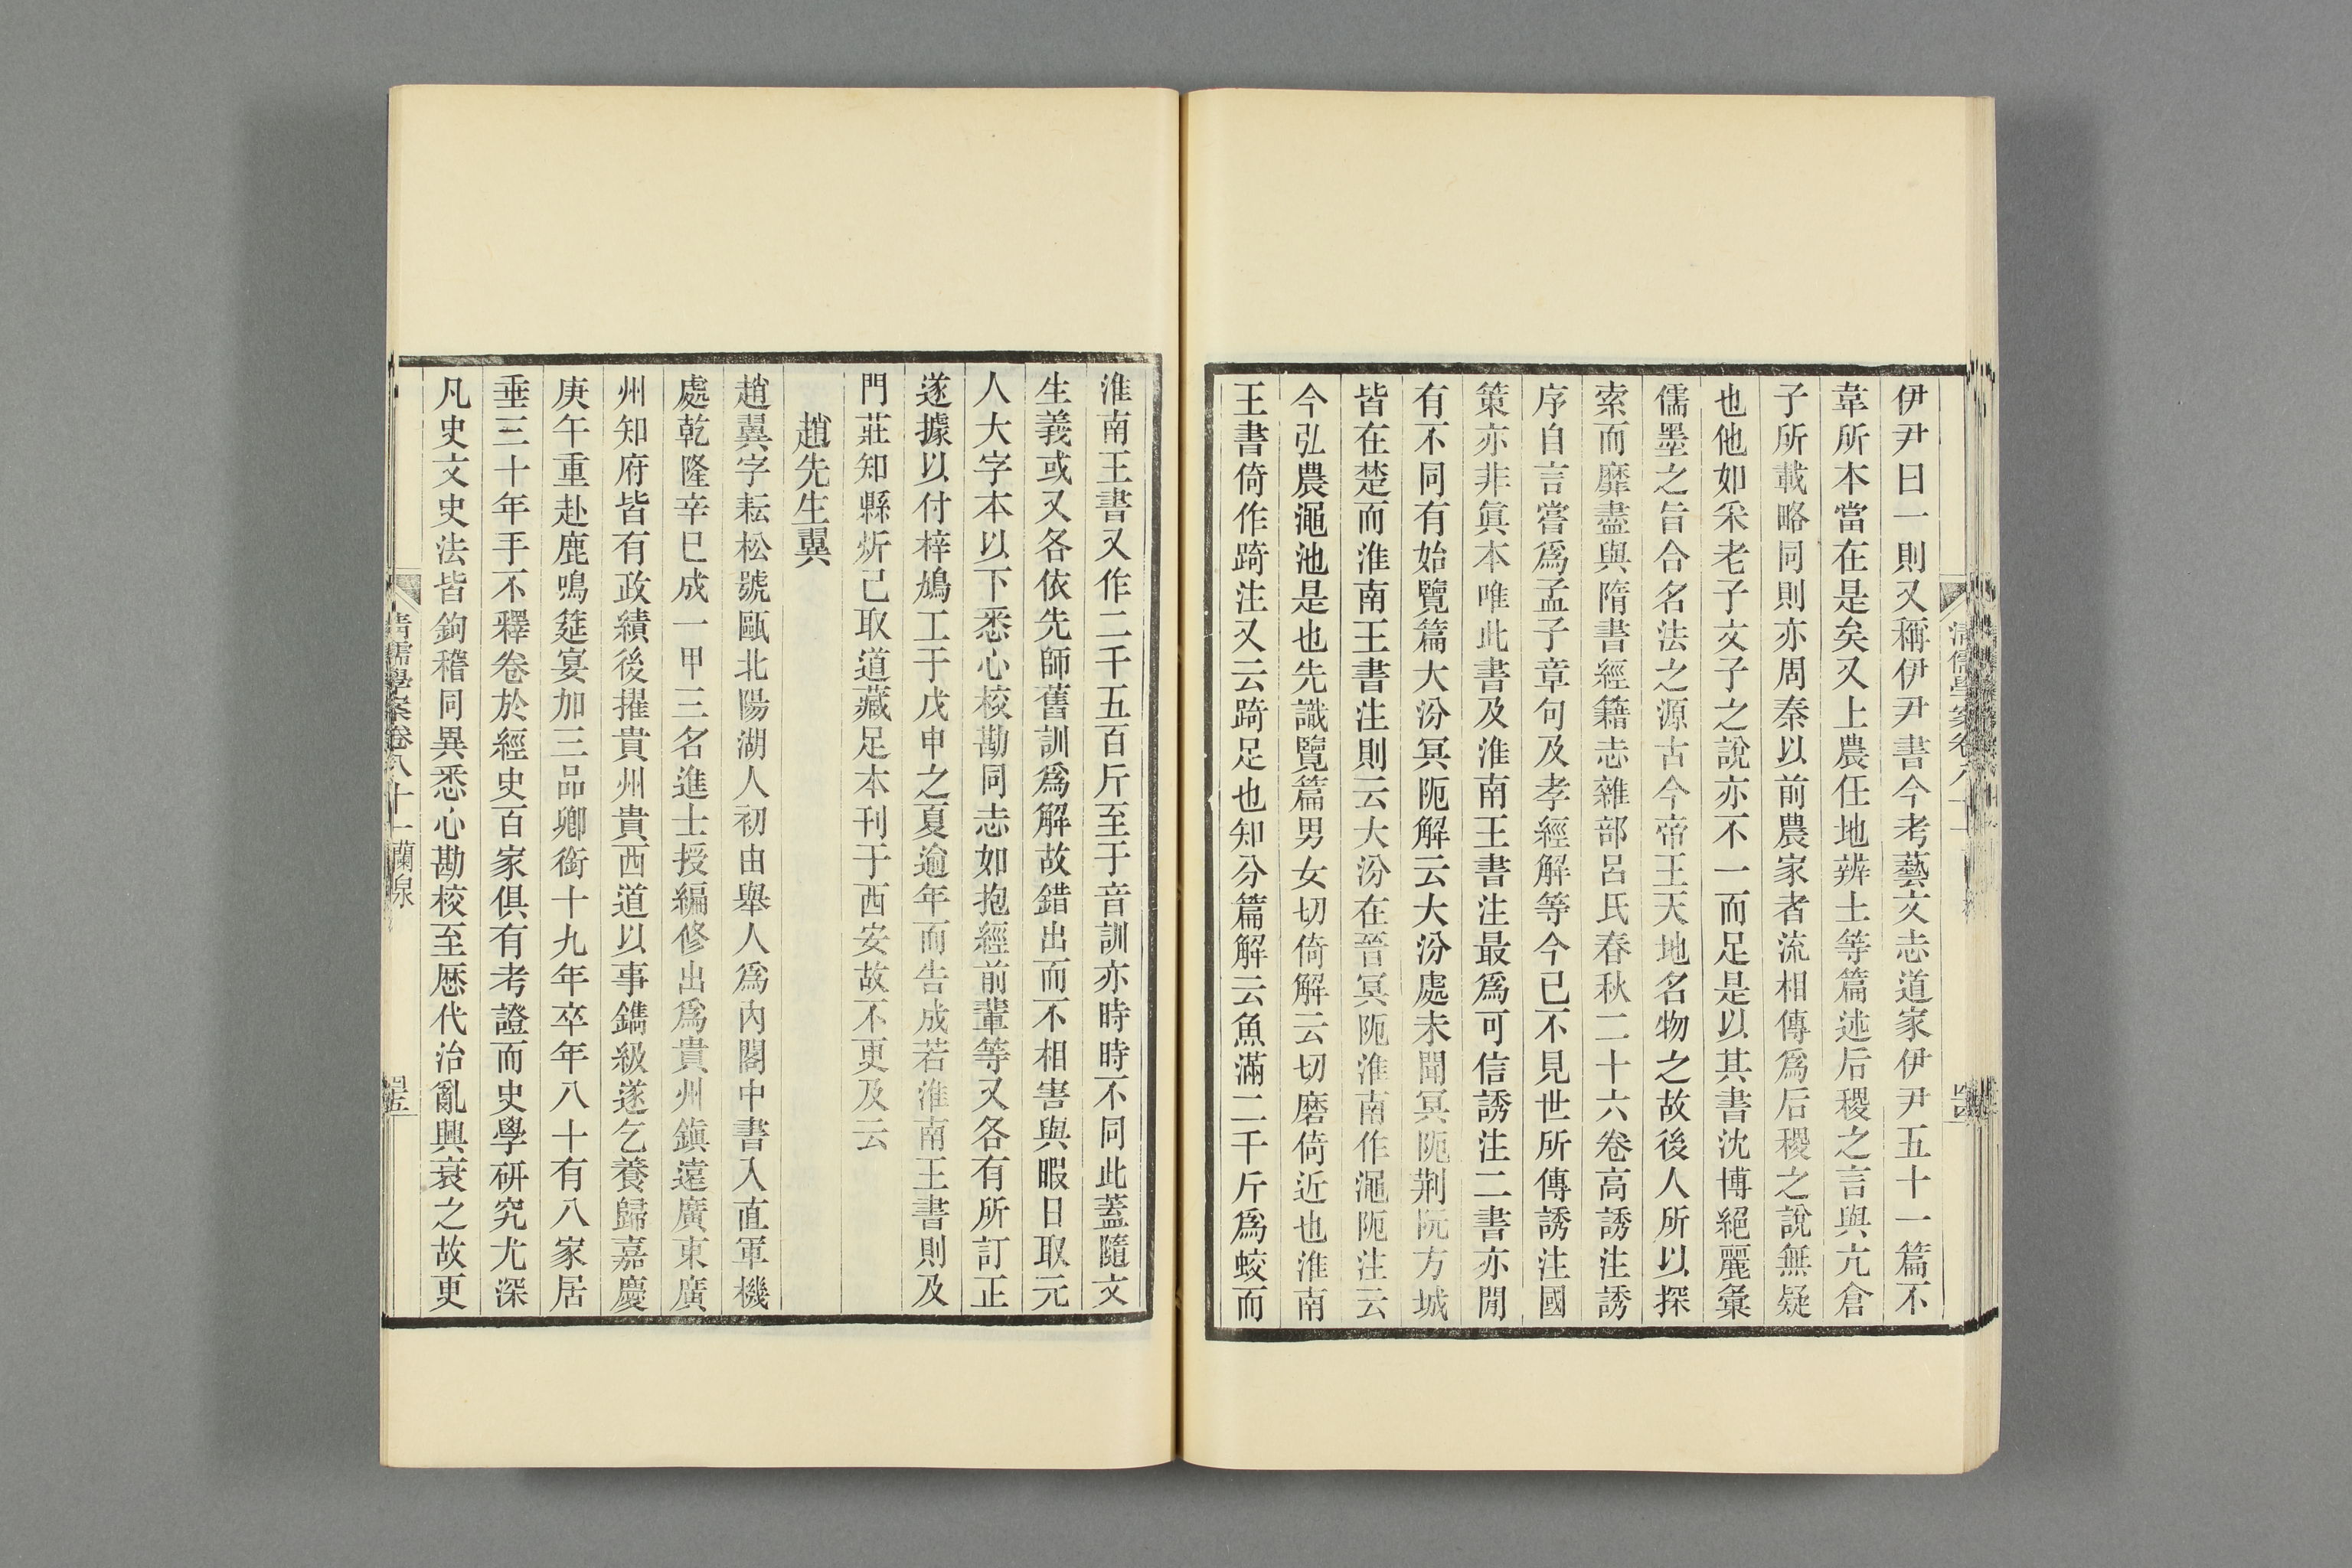 伊尹曰一則又稱伊尹書今考藝文志道家伊尹五十一篇不
韋所本當在是矣又上農任地辨土等篇述后稷之言與亢倉
子所載略同則亦周秦以前農家者流相傳爲后稷之說無疑
也他如采老子文子之說亦不一而足是以其書沈博絕麗彙
儒墨之旨合名法之源古今帝王天地名物之故後人所以探
索而靡盡與隋書經籍志雜部呂氏春秋二十六卷高誘注誘
序自言嘗爲孟子章句及孝經解等今已不見世所傳誘注國
策亦非眞本唯此書及淮南王書注最爲可信誘注二書亦閒
有不同有始覽篇大汾冥阨解云大汾處未聞冥阨荆阮方城
皆在楚而淮南王書注則云大汾在晉冥阨淮南作澠阨注云
今弘農澠池是也先識覽篇男女切倚解云切磨倚近也淮南
王書倚作踦注又云踦足也知分篇解云魚滿二千斤爲蛟而
淮南王書又作二千五百斤至于音訓亦時時不同此蓋隨文
生義或又各依先師舊訓爲解故錯出而不相害與暇日取元
人大字本以下悉心校勘同志如抱經前輩等又各有所訂正
遂據以付梓鳩工于戊申之夏逾年而告成若淮南王書則及
門莊知縣炘已取道藏足本刊于西安故不更及云
趙先生翼
趙翼字耘松號甌北陽湖人初由舉人爲內閣中書入直軍機
處乾隆辛巳成一甲三名進士授編修出爲貴州鎭遠廣東廣
州知府皆有政績後擢貴州貴西道以事鐫級遂乞養歸嘉慶
庚午重赴鹿鳴筵宴加三品卿銜十九年卒年八十有八家居
垂三十年手不釋卷於經史百家俱有考證而史學研究尤深
凡史文史法皆鉤稽同異悉心勘校至歷代治亂興衰之故更
清儒學案卷八十一 蘭泉